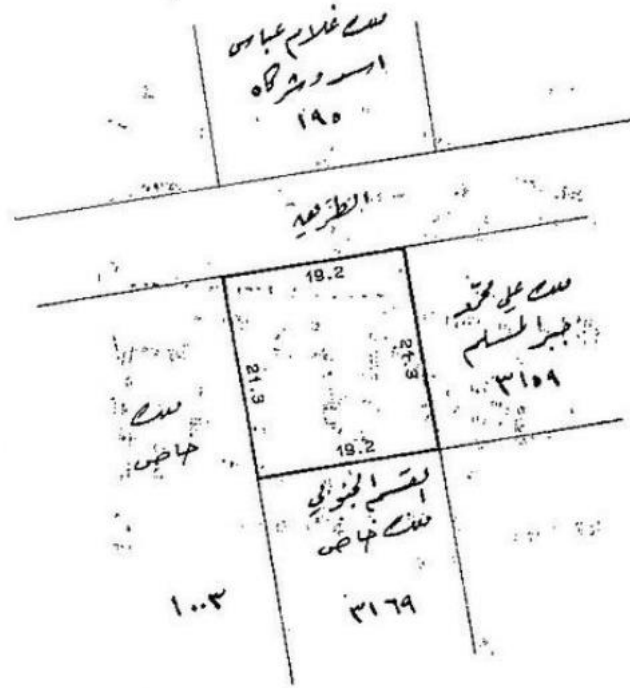 ملك غلام عباس
اسد وشركاه
١٩٥
الطريق
19.2
21.3
21.3
19.2
ملك علي محمد
جبر المسلم
٣١٥٩
ملك
خاص
١٠٠٣
القسم الجنوبي
ملك خاص
٣١٦٩